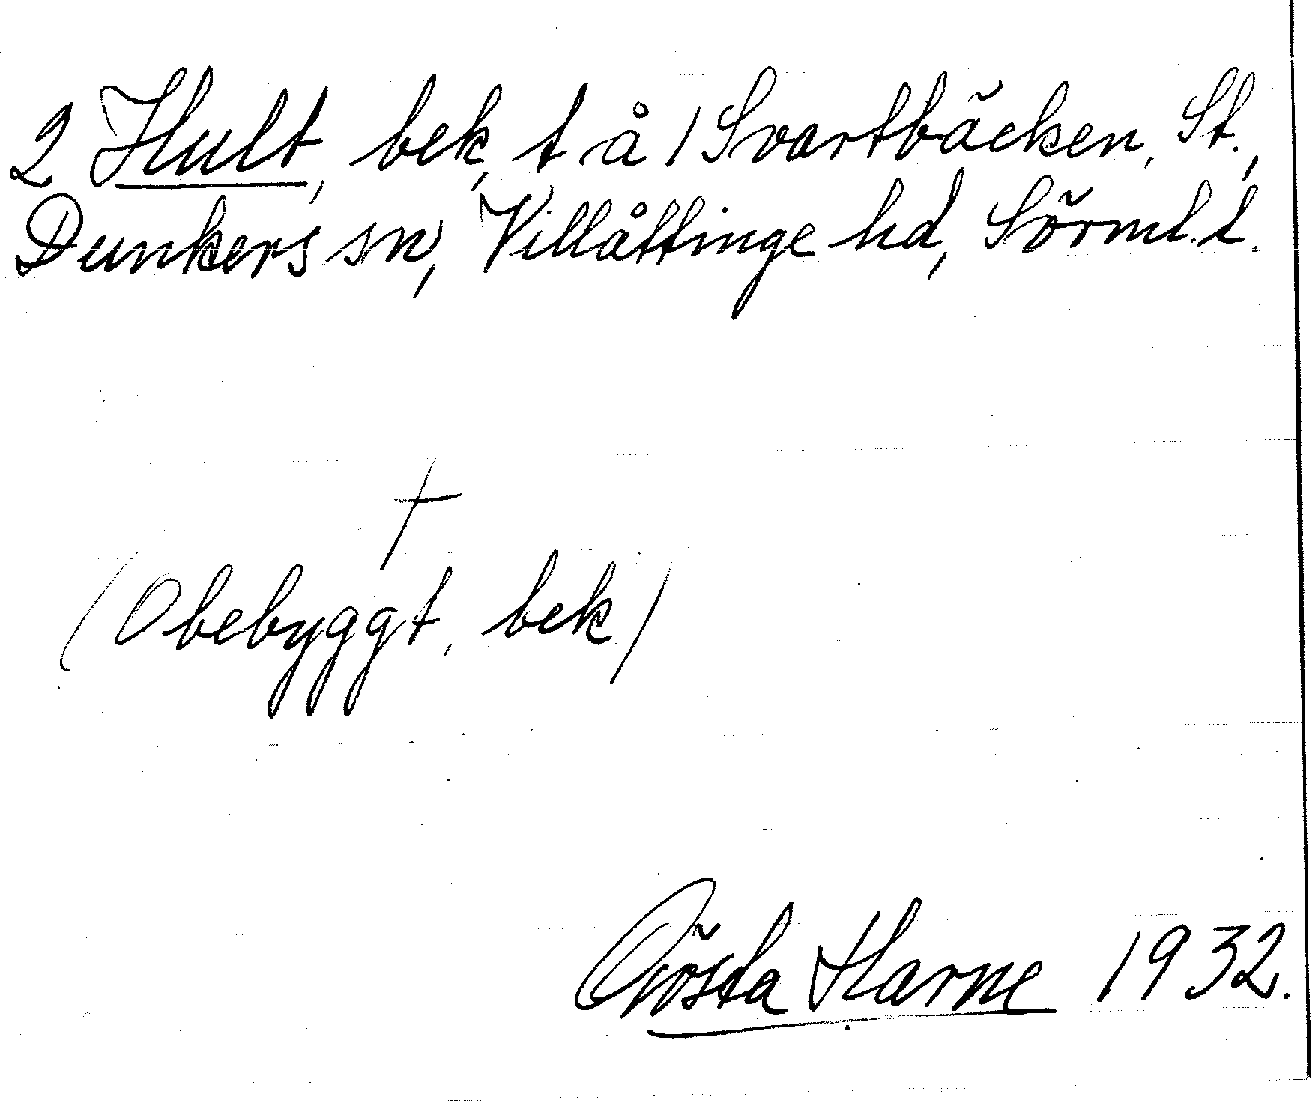 2 Hult, bek, t å 1 Svartbäcken, St.,
Dunkers sn, Villåttinge hd, Sörml. l.
†
(Obebyggt, bek)
Gösta Harne 1932.